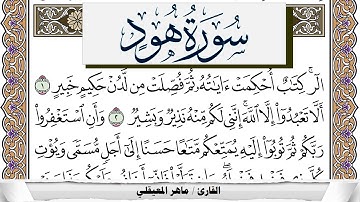 سُورَةُ هُودٍ
الٓر ۚ كِتَٰبٌ أُحْكِمَتْ ءَايَٰتُهُۥ ثُمَّ فُصِّلَتْ مِن لَّدُنْ حَكِيمٍ خَبِيرٍ ١
أَلَّا تَعْبُدُوٓا۟ إِلَّا ٱللَّهَ ۚ إِنَّنِى لَكُم مِّنْهُ نَذِيرٌ وَبَشِيرٌ ٢ وَأَنِ ٱسْتَغْفِرُوا۟
رَبَّكُمْ ثُمَّ تُوبُوٓا۟ إِلَيْهِ يُمَتِّعْكُم مَّتَٰعًا حَسَنًا إِلَىٰٓ أَجَلٍ مُّسَمًّى وَيُؤْتِ
القارئ / ماهر المعيقلي